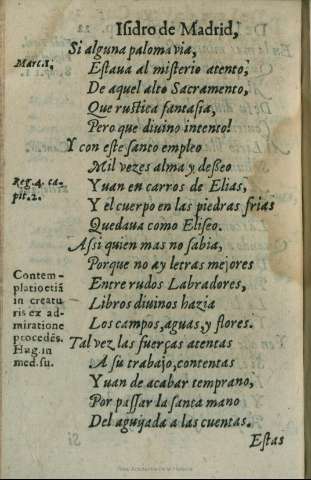 Isidro de Madrid,
Si alguna paloma via,
Marc. 1.
Estaua al misterio atento,
De aquel alto Sacramento,
Que rustica fantasia,
Pero que diuino intento!
Y con este santo empleo
Mil vezes alma y desseo
Reg. 4. ca-
pit. 2.
Yuan en carros de Elias,
Y el cuerpo en las piedras frias
Quedaua como Eliseo.
Assi quien mas no sabia,
Porque no ay letras mejores
Entre rudos Labradores,
Libros diuinos hazia
Los campos, aguas, y flores.
Contem-
platio etiā
in creatu
ris ex ad-
miratione
procedēs.
Hug. in
med. su.
Tal vez las fuerças atentas
A su trabajo, contentas
Yuan de acabar temprano,
Por passar la santa mano
Del aguijada a las cuentas.
Estas
Real Academia de la Historia